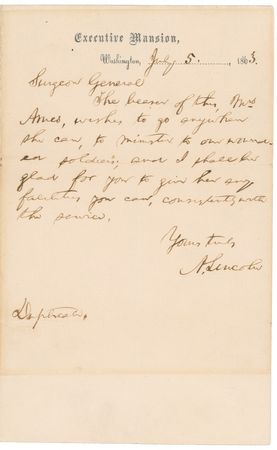 Executive Mansion,
Washington, July 5, 1863.
Surgeon General
The bearer of this, Mrs
Ames, wishes to go anywhere
she can, to minister to our wound-
ed soldiers, and I shall be
glad for you to give her any
facilities you can, consistently with
the service.
Yours truly
A. Lincoln
Duplicate.